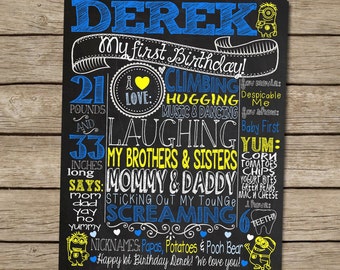 DEREK
My first Birthday!
21
POUNDS
33
INCHES
long
SAYS:
mom
dad
yay
no
yummy
I
LOVE:
CLIMBING
HUGGING
MUSIC & DANCING
LAUGHING
MY BROTHERS & SISTERS
MOMMY & DADDY
STICKING OUT MY TOUNGE
SCREAMING
Despicable
Me
Baby First
YUM:
CORN
TOMATOES
CHIPS
YOGURT BITS
GREEN BEANS
MAC N CHEESE
6
TEETH!
NICKNAMES: Papas, Potatoes & Pooh Bear
Happy 1st Birthday Derek! We love you!